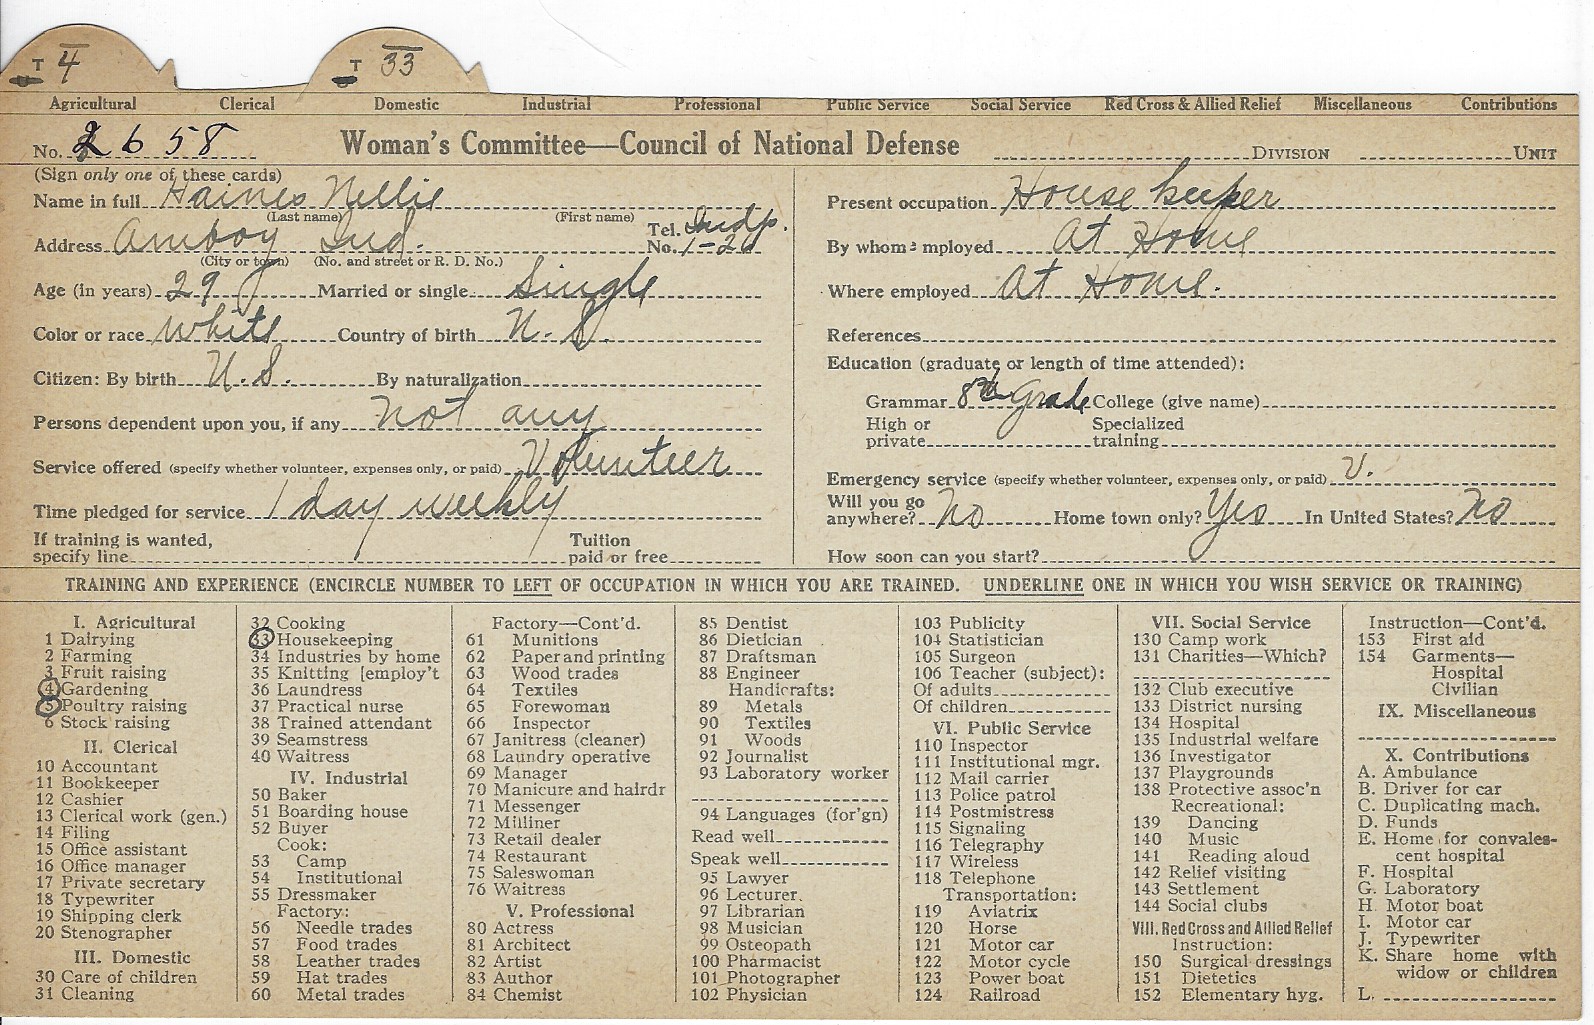 T 4 T 33
Agricultural Clerical Domestic Industrial Professional Public Service Social Service Red Cross & Allied Relief Miscellaneous Contributions
No. 2658 Woman's Committee—Council of National Defense DIVISION UNIT
(Sign only one of these cards)
Name in full Haines Nellie
(Last name) (First name)
Address Amboy Ind. Tel. No. Indp. 1-20
(City or town) (No. and street or R. D. No.)
Age (in years) 29 Married or single Single
Color or race White Country of birth U. S.
Citizen: By birth U. S. By naturalization
Persons dependent upon you, if any not any
Service offered (specify whether volunteer, expenses only, or paid) Volunteer
Time pledged for service 1 day weekly
If training is wanted, specify line Tuition paid or free
Present occupation House keeper
By whom employed at Home
Where employed at Home.
References
Education (graduate or length of time attended):
Grammar 8th Grade College (give name)
High or private Specialized training
Emergency service (specify whether volunteer, expenses only, or paid) V.
Will you go anywhere? No Home town only? Yes In United States? No
How soon can you start?
TRAINING AND EXPERIENCE (ENCIRCLE NUMBER TO LEFT OF OCCUPATION IN WHICH YOU ARE TRAINED. UNDERLINE ONE IN WHICH YOU WISH SERVICE OR TRAINING)
I. Agricultural
1 Dairying
2 Farming
3 Fruit raising
4 Gardening
5 Poultry raising
6 Stock raising
II. Clerical
10 Accountant
11 Bookkeeper
12 Cashier
13 Clerical work (gen.)
14 Filing
15 Office assistant
16 Office manager
17 Private secretary
18 Typewriter
19 Shipping clerk
20 Stenographer
III. Domestic
30 Care of children
31 Cleaning
32 Cooking
33 Housekeeping
34 Industries by home
35 Knitting [employ't
36 Laundress
37 Practical nurse
38 Trained attendant
39 Seamstress
40 Waitress
IV. Industrial
50 Baker
51 Boarding house
52 Buyer
Cook:
53 Camp
54 Institutional
55 Dressmaker
Factory:
56 Needle trades
57 Food trades
58 Leather trades
59 Hat trades
60 Metal trades
Factory—Cont'd.
61 Munitions
62 Paper and printing
63 Wood trades
64 Textiles
65 Forewoman
66 Inspector
67 Janitress (cleaner)
68 Laundry operative
69 Manager
70 Manicure and hairdr
71 Messenger
72 Milliner
73 Retail dealer
74 Restaurant
75 Saleswoman
76 Waitress
V. Professional
80 Actress
81 Architect
82 Artist
83 Author
84 Chemist
85 Dentist
86 Dietician
87 Draftsman
88 Engineer
Handicrafts:
89 Metals
90 Textiles
91 Woods
92 Journalist
93 Laboratory worker
94 Languages (for'gn)
Read well
Speak well
95 Lawyer
96 Lecturer.
97 Librarian
98 Musician
99 Osteopath
100 Pharmacist
101 Photographer
102 Physician
103 Publicity
104 Statistician
105 Surgeon
106 Teacher (subject):
Of adults
Of children
VI. Public Service
110 Inspector
111 Institutional mgr.
112 Mail carrier
113 Police patrol
114 Postmistress
115 Signaling
116 Telegraphy
117 Wireless
118 Telephone
Transportation:
119 Aviatrix
120 Horse
121 Motor car
122 Motor cycle
123 Power boat
124 Railroad
VII. Social Service
130 Camp work
131 Charities—Which?
132 Club executive
133 District nursing
134 Hospital
135 Industrial welfare
136 Investigator
137 Playgrounds
138 Protective assoc'n
Recreational:
139 Dancing
140 Music
141 Reading aloud
142 Relief visiting
143 Settlement
144 Social clubs
VIII. Red Cross and Allied Relief
Instruction:
150 Surgical dressings
151 Dietetics
152 Elementary hyg.
Instruction—Cont'd.
153 First aid
154 Garments—
Hospital
Civilian
IX. Miscellaneous
X. Contributions
A. Ambulance
B. Driver for car
C. Duplicating mach.
D. Funds
E. Home for convales-
cent hospital
F. Hospital
G. Laboratory
H. Motor boat
I. Motor car
J. Typewriter
K. Share home with
widow or children
L.